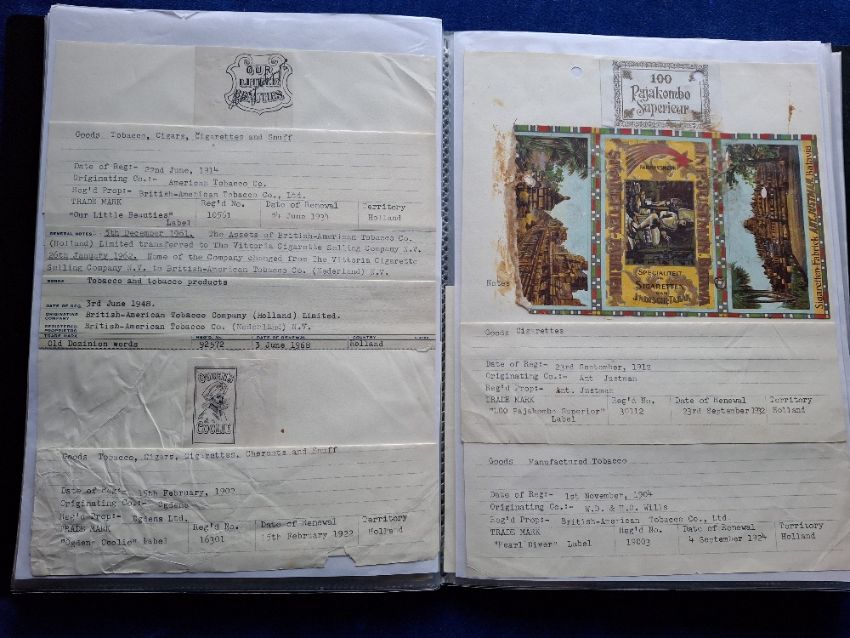 OUR
LITTLE
BEAUTIES
Goods Tobacco, Cigars, Cigarettes and Snuff
Date of Reg:- 22nd June, 1914
Originating Co:- American Tobacco Co.
Reg'd Prop:- British-American Tobacco Co., Ltd.
TRADE MARK Reg'd No. Date of Renewal Territory
"Our Little Beauties" 10551 June Holland
Label
GENERAL NOTES:- 5th December 1961. The Assets of British-American Tobacco Co.
(Holland) Limited transferred to The Vittoria Cigarette Selling Company N.V.
26th January 1962. Name of the Company changed from The Vittoria Cigarette
Selling Company N.V. to British-American Tobacco Co. (Nederland) N.V.
GOODS Tobacco and tobacco products
DATE OF REG. 3rd June 1948.
ORIGINATING COMPANY British-American Tobacco Company (Holland) Limited.
REGISTERED PROPRIETOR British-American Tobacco Co. (Nederland) N.V.
TRADE MARK REG'D. No. DATE OF RENEWAL COUNTRY
Old Dominion words 92572 3 June 1968 Holland
OGDEN'S
COOLIE
Goods Tobacco, Cigars, Cigarettes, Cheroots and Snuff
Date of Reg:- 15th February, 1902
Originating Co:- Ogdens
Reg'd Prop:- Ogdens Ltd.
TRADE MARK Reg'd No. Date of Renewal Territory
"Ogdens Coolie" Label 16301 15th February 1922 Holland
100
Pajakombo
Superieur
SPECIALITEIT
SIGARETTEN
VAN
INDISCHE TABAK
Notes
Goods Cigarettes
Date of Reg:- 23rd September, 1912
Originating Co.:- Ant. Justman
Reg'd Prop:- Ant. Justman
TRADE MARK Reg'd No. Date of Renewal Territory
"100 Pajakombo Superior" 30112 23rd September 1932 Holland
Label
Goods Manufactured Tobacco
Date of Reg:- 1st November, 1904
Originating Co:- W.D. & H.O. Wills
Reg'd Prop:- British-American Tobacco Co., Ltd
TRADE MARK Reg'd No. Date of Renewal Territory
"Pearl Diver" Label 19003 4 September 1924 Holland